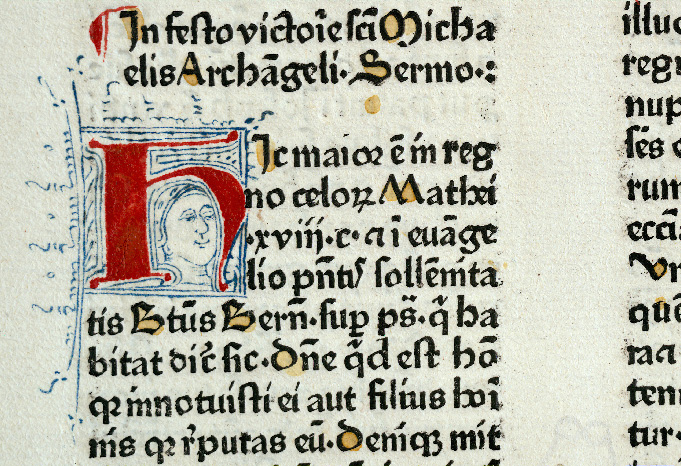 In festo victorie scī Micha
elis Archāgeli. Sermo.:
HIc maior ē in reg
no celoꝝ Mathei
.xviij.c. ⁊ ī euāge
lio pn̄tis sollēnita
tis Btūs Bern̄.sup ps̄.q̄ ha
bitat dic̄ sic.Dn̄e q̄d est hō
qꝛ innotuisti ei aut filius hoī
nis qꝛ r̄putas eū.Deniqꝫ mit
illuc
regn
nup
sēs
rum
eccīa
Vn
que
ra
ten
tur.